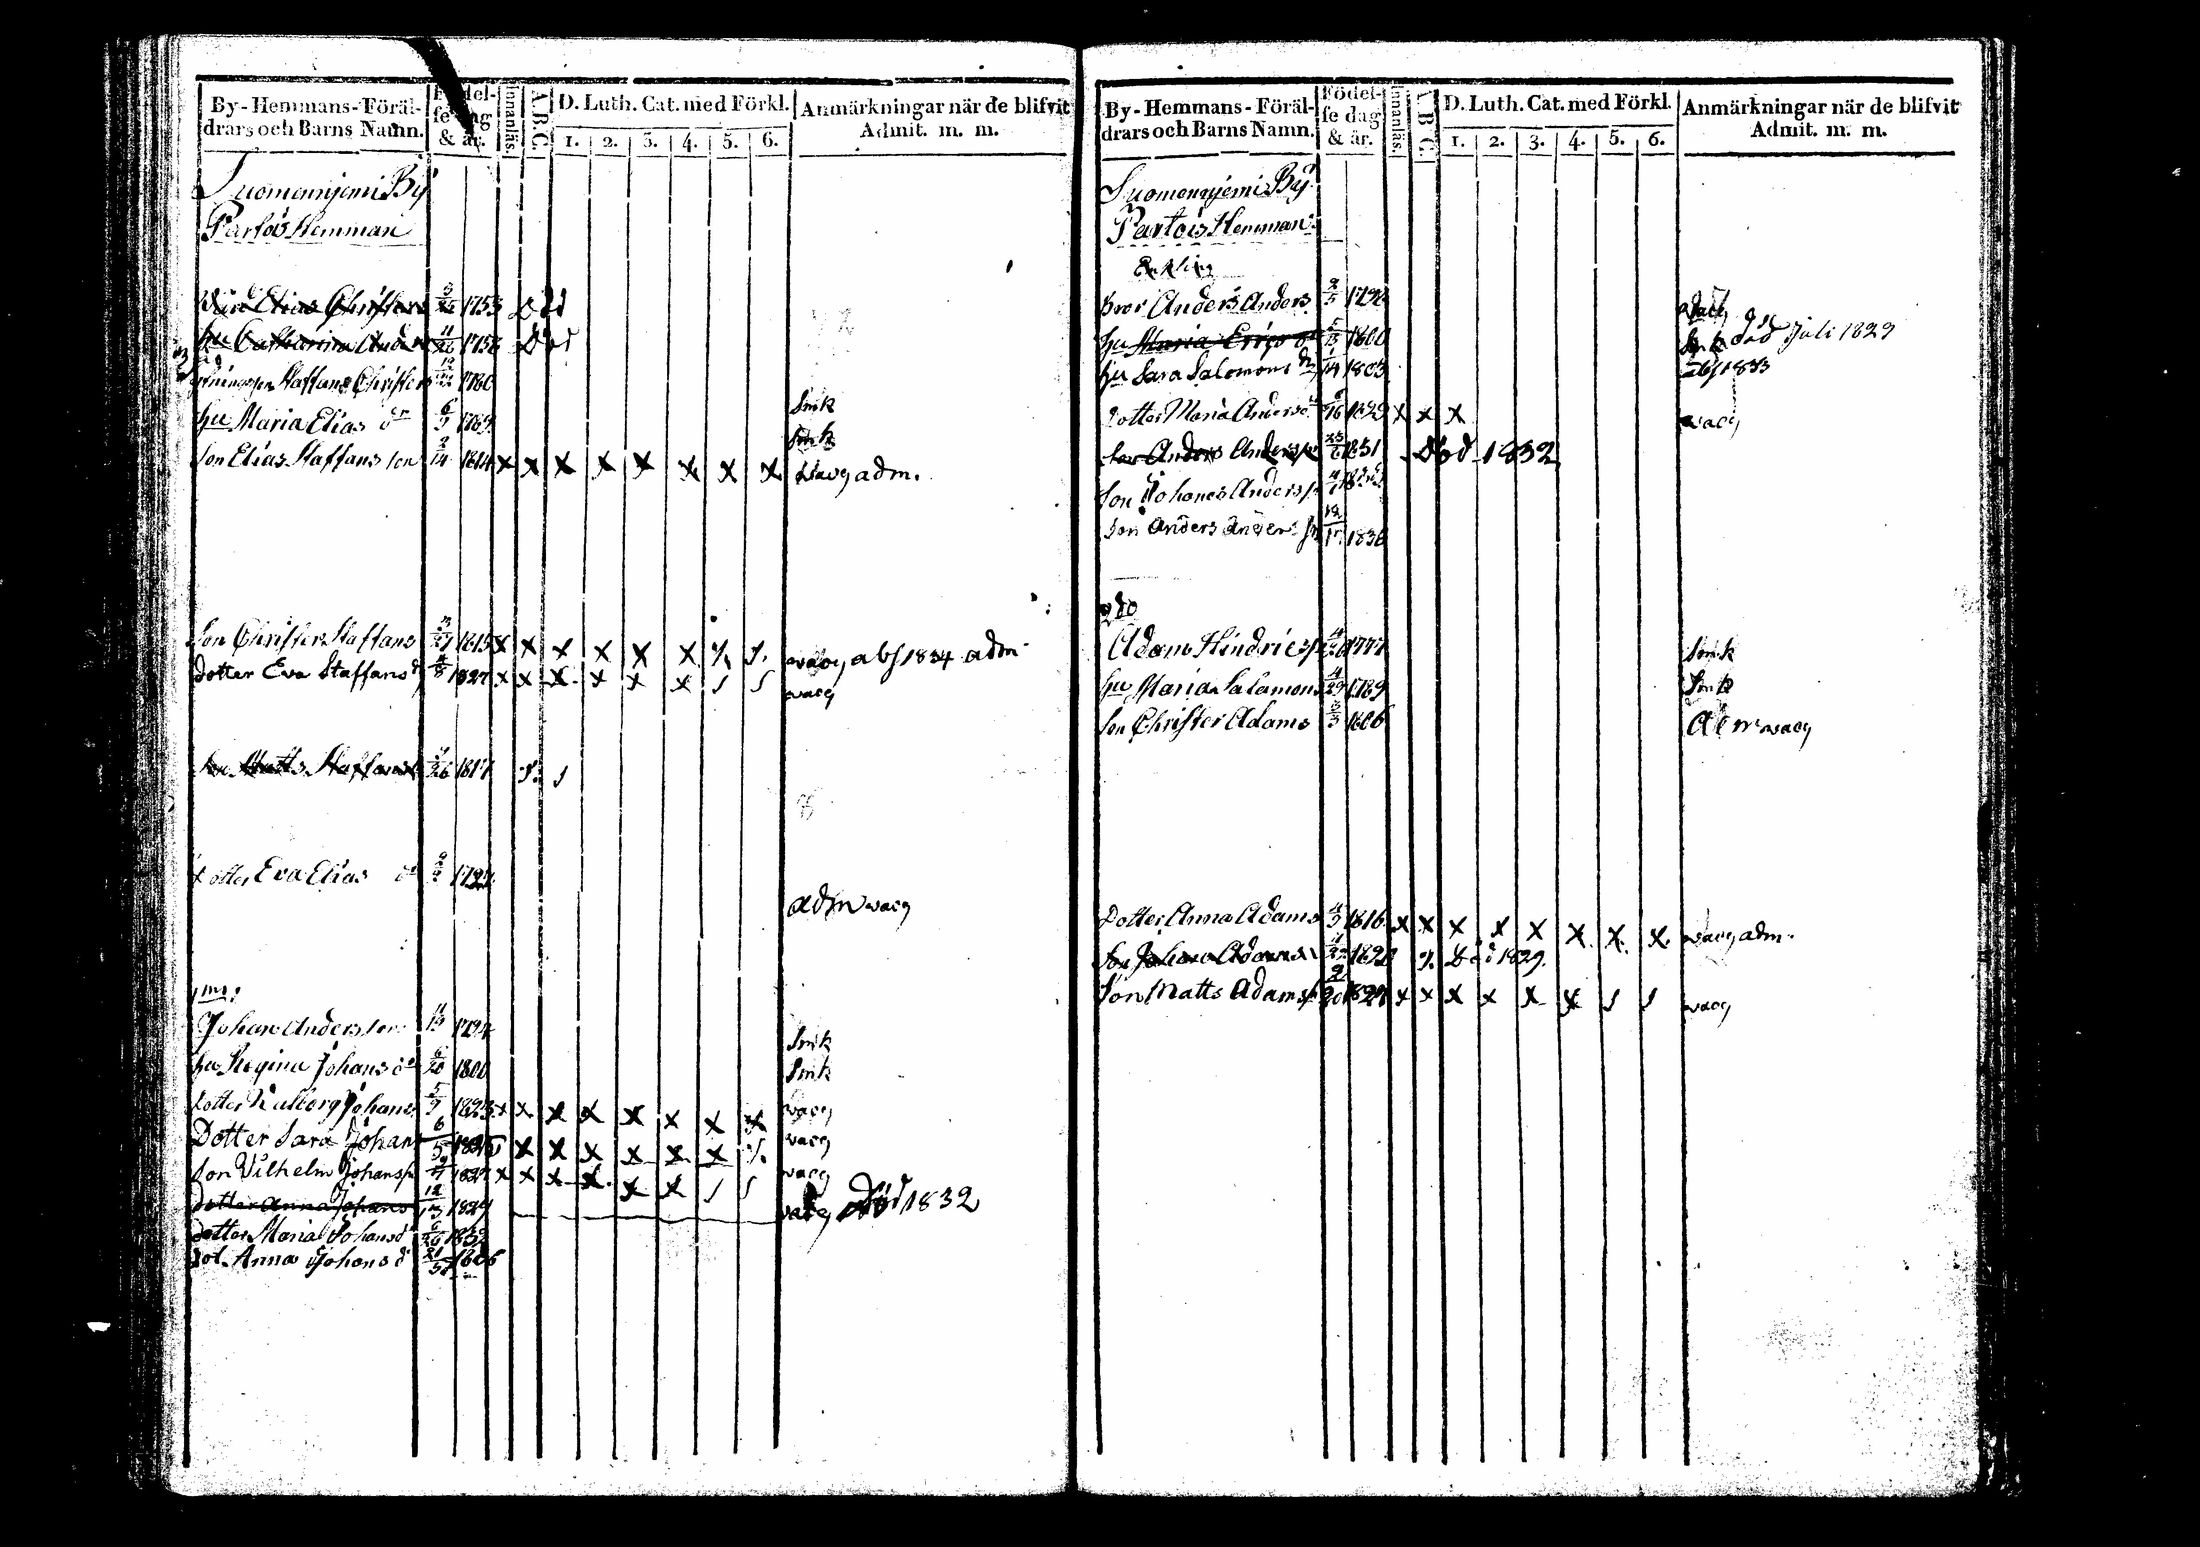 By-Hemmans-Föräl-
drars och Barns Namn.
Födel-
se dag
& är.
Innanläs.
A.B.C.
D. Luth. Cat. med Förkl.
1. 2. 3. 4. 5. 6.
Anmärkningar när de blifvit
Admit. m. m.
Suomenniemi By
Partois Hemman
Elias Christers 1753 Död
hu Catharina Anders 1756 Död
Staffans Christers 1760
hu Maria Elias dr 6/9 1789 Smk
Smk
Son Elias Staffans son 2/14 1814 x x x x x x x x wacg adm.
Son Christer Staffans 1815 x x x x x x wacg abs 1834 adm
Dotter Eva Staffans d 1827 x x x x x x wacg
Son Matts Staffans 1817
Dotter Eva Elias dr 1792
adm wacg
1mo.
Johan Anders son 1794 Smk
hu Regina Johans dr 6/20 1800 Smk
Dotter Walborg Johans 5/9 1823 x x x x x x x x wacg
Dotter Sara Johans 6/5 1825 x x x x x x wacg
Son Vilhelm Johans 1827 x x x x x x wacg
Dotter Anna Johans 12/13 1829 wacg Död 1832
Dotter Maria Johans d 1832
dot. Anna Johans d 21/5 1836
By-Hemmans-Föräl-
drars och Barns Namn.
Födel-
se dag
& är.
Innanläs.
A B C.
D. Luth. Cat. med Förkl.
1. 2. 3. 4. 5. 6.
Anmärkningar när de blifvit
Admit. m. m.
Suomenniemi By
Partois Hemman
Enkling
Bror Anders Anders 2/5 179
hu Maria Erics dr 5/13 1800 död Juli 1829
hu Sara Salomons dr 1/14 1803 abs 1833
Dotter Maria Anders 1829 x x x wacg
Son Anders Anders 1831 Död 1832
Son Johanes Anders
Son Anders Anders 12/17 1836
2do
Adam Hindrics 1777 Smk
hu Maria Salamons 4/29 1789 Smk
Son Christer Adams 1806 Adm wacg
Dotter Anna Adams 1816 x x x x x x x x wacg adm.
Son Johan Adams Död 1829.
Son Matts Adams 2/20 1827 x x x x x x wacg